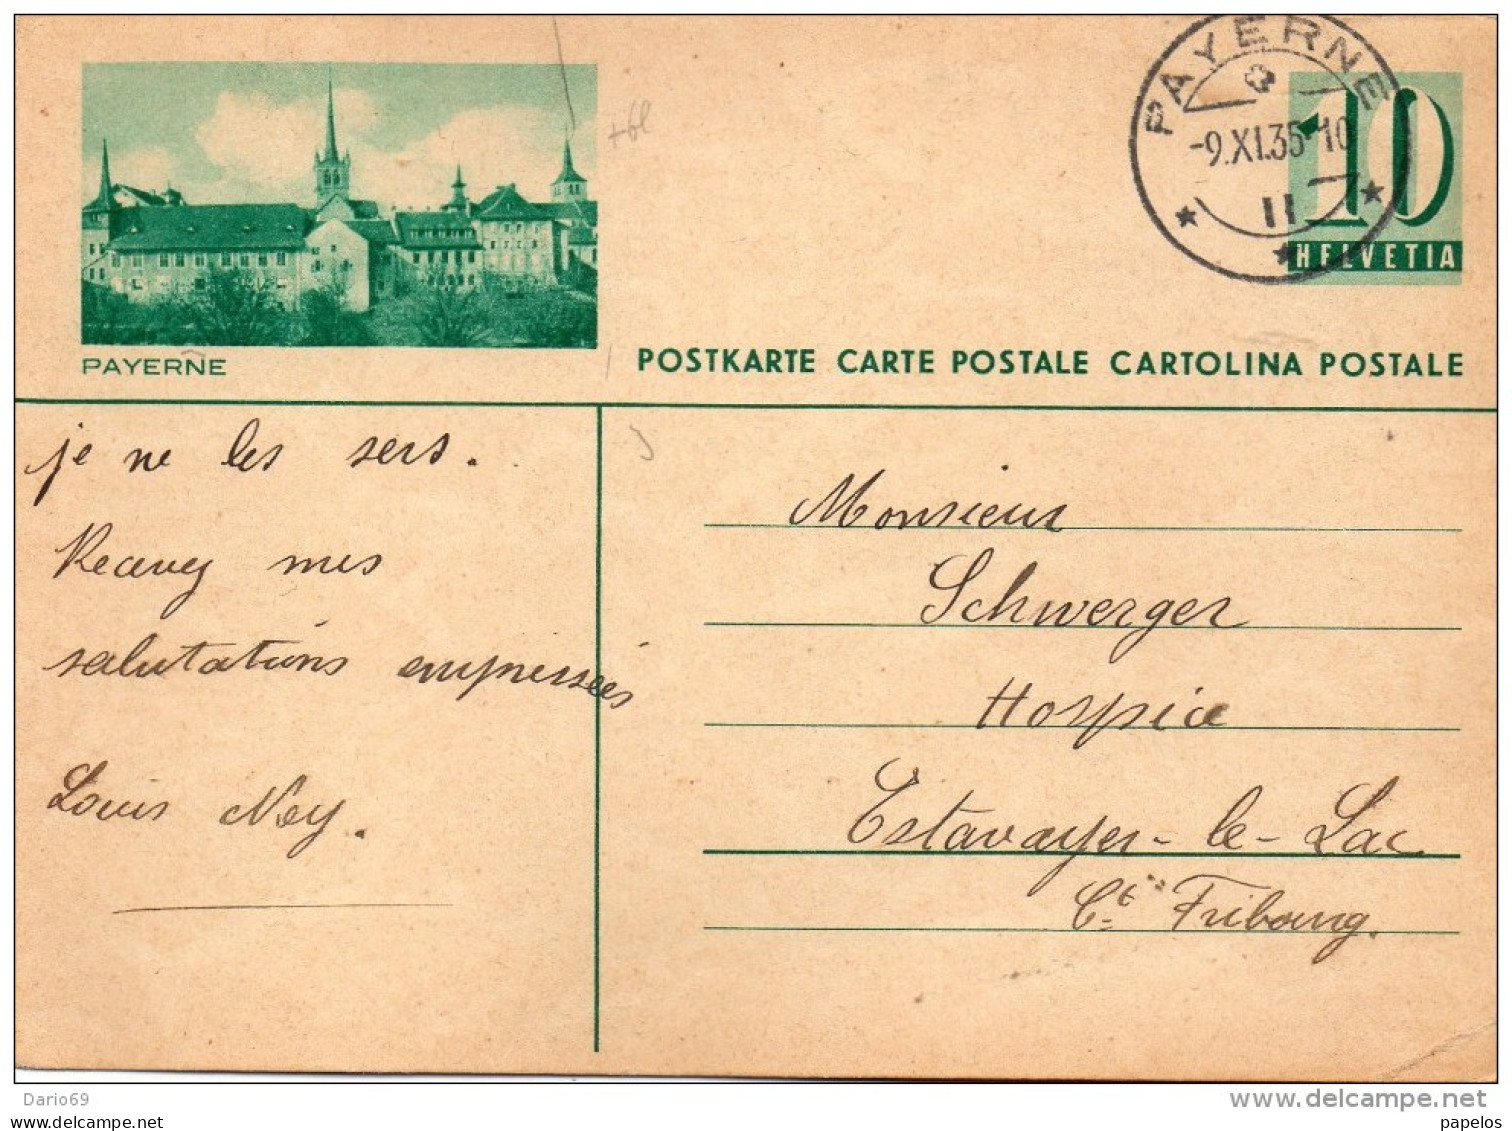 PAYERNE
-9.XI.35-10
II
10
HELVETIA
PAYERNE
POSTKARTE CARTE POSTALE CARTOLINA POSTALE
je ne les sers.
Recevez mes
salutations empressées
Louis Ney.
Monsieur
Schwerger
Hospice
Estavayer-le-Lac
Ct. Fribourg.
Dario69
www.delcampe.net
papelos.net
papelos